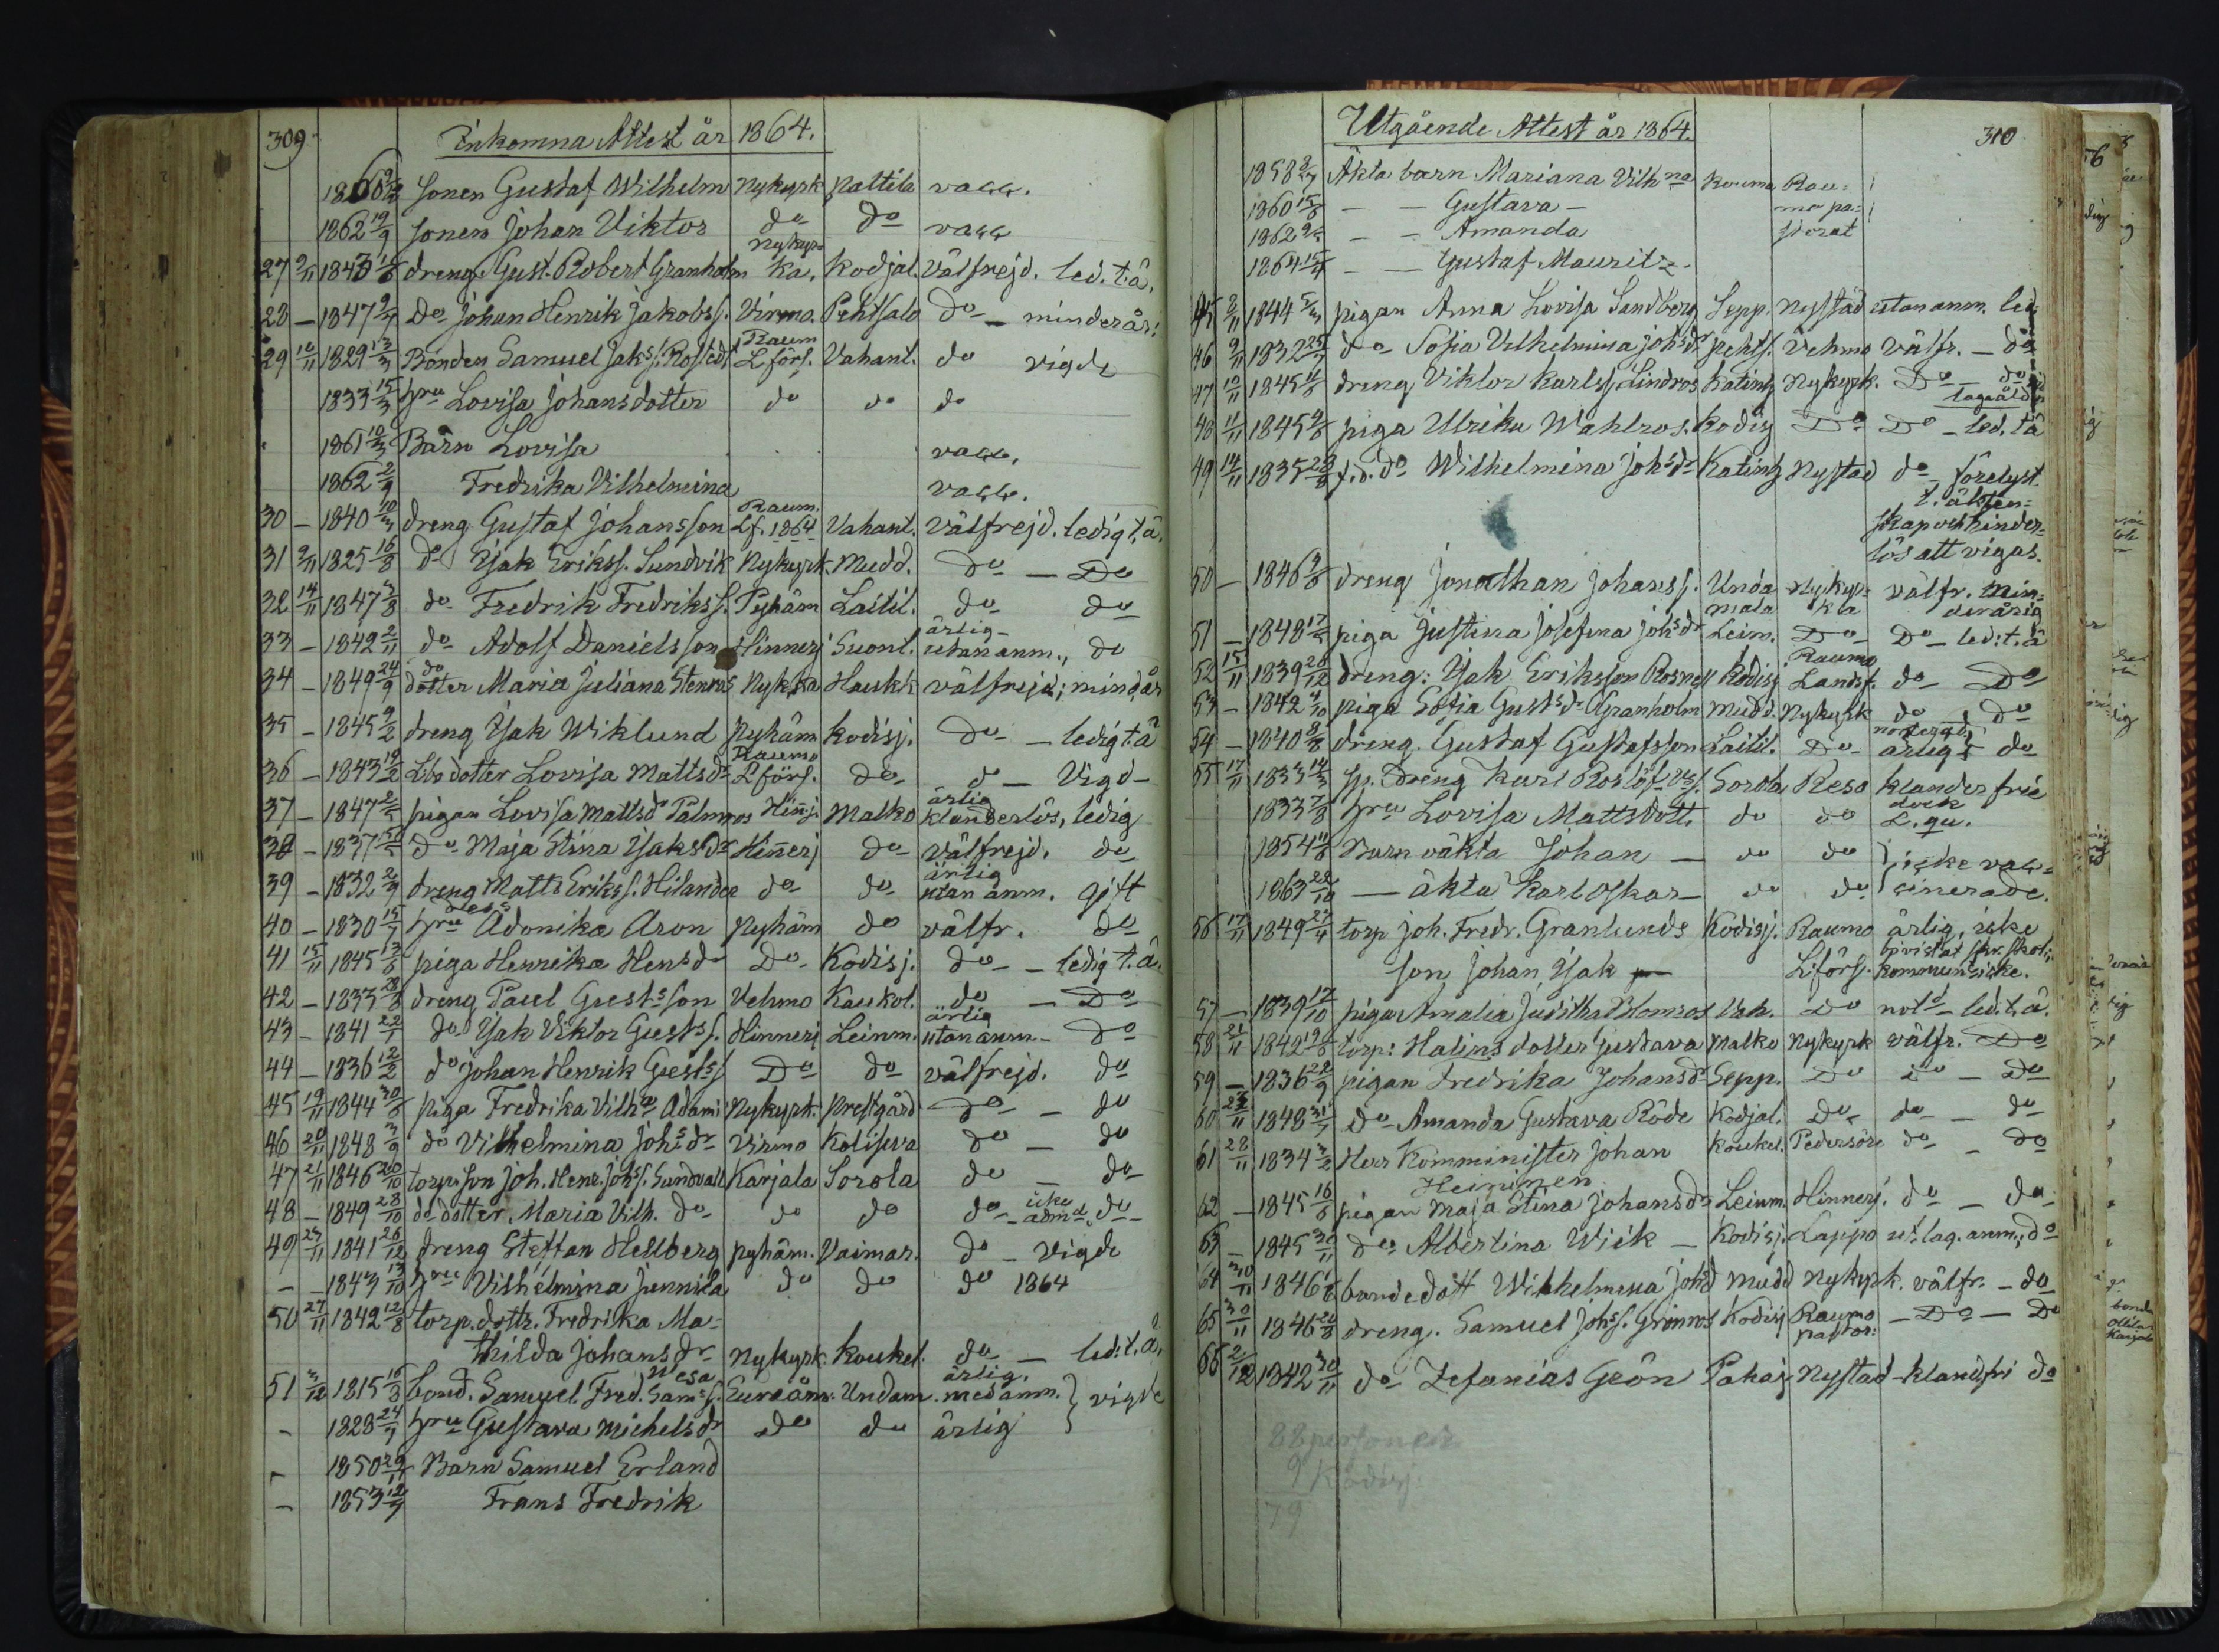 309 Inkomna Attest år 1864.
1860 sonen Gustaf Wilhelm Nykyrk Palttila vacc.
1862 19/9 sonen Johan Viktor do do vacc
27 9/11 1843 dreng. Gust. Robert Granholm Nykyrka, Kodjal. välfrejd. led. t. ä.
28 – 1847 do Johan Henrik Jakobss. Virmo. Pehtsalo do – minderår:
29 10/11 1829 13/3 Bonden Samuel Jakss. Rostedt Raum Lförs. Vahant. do vigde
1833 15/3 hru Lovisa Johansdotter do do do
1861 10/3 Barn Lovisa vacc.
1862 2/9 Fredrika Vilhelmina vacc.
30 – 1840 dreng Gustaf Johansson Raum. Lf. 1864 Vahant. välfrejd. ledig t. ä.
31 9/11 1825 16/8 do Isak Erikss. Sundvik Nykyrk. Mudd. do – do
32 14/11 1847 3/8 do Fredrik Fredrikss. Pyhäm Laitil. do do
33 – 1842 2/11 do Adolf Danielsson Hinnerj Suont. ärlig – utan anm., do
34 – 1849 24/9 do dotter Maria Juliana Stenros Nykka Haukk välfrejd; mind. år
35 – 1845 9/2 dreng Isak Wiklund Pyhäm Kodisj. do – ledig t. ä
36 – 1843 19/2 Lbo dotter Lovisa Mattsdr Raumo Lförs. do do – Vigd –
37 – 1847 pigan Lovisa Mattsdr Palmros Hinnj. Malko ärlig klanderlös, ledig
38 – 1837 do Maja Stina Isaksdr Hinnerj do välfrejd. do
39 – 1832 2/9 dreng Matts Erikss. Hilander do do ärlig utan anm. gift
40 – 1830 15/7 dess hru Adonika Aron Pyhäm do välfr. do
41 15/11 1845 piga Henrika Hensdr do Kodisj. do – ledig t. ä.
42 – 1833 28/8 dreng Paul Gustsson Vehmo Kaukol. do – do
43 – 1841 22/1 do Isak Viktor Gustss. Hinnerj Leinm. ärlig utan anm – do
44 – 1836 12/2 do Johan Henrik Gustss do do välfrejd. do
45 19/11 1844 piga Fredrika Vilhna Adami Nykyrk. Prestgård do – do
46 20/11 1848 3/9 do Vilhelmina Johsdr Virmo Koliseva do – do
47 21/11 1846 20/10 torp. son Joh. Henr. Johss. Sundvall Karjala Sorola do – do
48 – 1849 28/10 do dotter Maria Vilh. do do do do – icke admd. do
49 23/11 1841 26/12 dreng Steffan Hellberg Pyhäm. Vaimar. do – vigde
– – 1843 13/10 hru Vilhelmina Jennika do do do 1864
50 27/11 1842 12/8 torp. dottr. Fredrika Ma-
thilda Johansdr Nykyrk. Koukel. do – led: t. ä,
51 3/12 1815 16/3 bond. Samuel Fred. Sams. Wesa Euraåm: Undam. ärlig. med anm. } vigde
– 1828 24/7 hru Gustava Michelsdr do do ärlig
– 1850 29/11 Barn Samuel Erland
– 1853 12/7 Frans Fredrik
Utgående Attest år 1864. 310
1858 Äkta barn Mariana Vilhna Kouma Rau-
1860 15/8 – – Gustava – mo pa-
1862 – – Amanda storat
1864 – – Gustaf Mauritz –
45 9/11 1844 pigan Anna Lovisa Sandberg Sepp. Nystad utan anm. led
46 9/11 1832 do Sofia Vilhelmina Johsdr Pehts. Vehmo välfr. – do
47 10/11 1845 dreng Viktor Karlss. Lindros Katinh Nykyrk. do – do
lagaåld
48 11/11 1845 piga Ulrika Wahlros. Kodisj do do – led. t ä
49 14/11 1835 28/8 f.d. do Wilhelmina Johsdr Katinh Nystad do – förelyst.
t. äkten-
skap och hinder-
lös att vigas.
50 – 1846 dreng Jonathan Johanss. Unda mala Nykyr- ka välfr. min- derårig
51 – 1848 17/2 piga Justina Josefina Johsdr Leim. do do – led: t. ä
52 15/11 1839 26/12 dreng: Isak Eriksson Rosnell Kodisj Raumo Landsf. do do
53 – 1842 4/10 piga Sofia Gustsdr Granholm Mudd. Nykyrk do do
54 – 1840 dreng. Gustaf Gustafsson Laitil. do ärlig do
55 17/11 1833 14/3 sp. dreng Karl Roslöf Sorola Reso klanderfrie
1833 hru Lovisa Mattsdott. do do dock L. qu.
1854 Barn oäkta Johan – do do } icke vac-
1863 28/10 – äkta Karl Oskar – do do cinerade.
56 17/11 1849 torp Joh. Fredr. Granlunds Kodisj. Raumo ärlig, icke
son, Johan Isak Lförs. bivistat skr. skol. kommun: icke.
57 – 1839 17/10 piga Amalia Juditha Blomros Vah. do notd – led. t. ä.
58 21/11 1842 torp: Halins dotter Gustava Malko Nykyrk välfr. do
59 – 1836 28/9 pigan Fredrika Johansdr Sepp. do do – do
60 1848 31/7 do Amanda Gustava Röde Kodjal. do do – do
61 28/11 1834 3/2 Herr Komminister Johan Koukel. Pedersöre do – do
Heininen
62 – 1845 pigan Maja Stina Johansdr Leinm. Hinnerj. do – do
63 – 1845 30/11 do Albertina Wiik – Kodisj. Lappo ut. lag. anm., do
64 30/11 1846 bondedott Wilhelmina Johsd Mudd Nykyrk. välfr. – do
65 30/11 1846 20/8 dreng. Samuel Johss. Grönros Kodisj Raumo pastor: – do – do
66 2/12 1842 30/11 do Zefanias Geön Pahaj Nystad – klandfri do
88 personer
9 Kodisj.
79